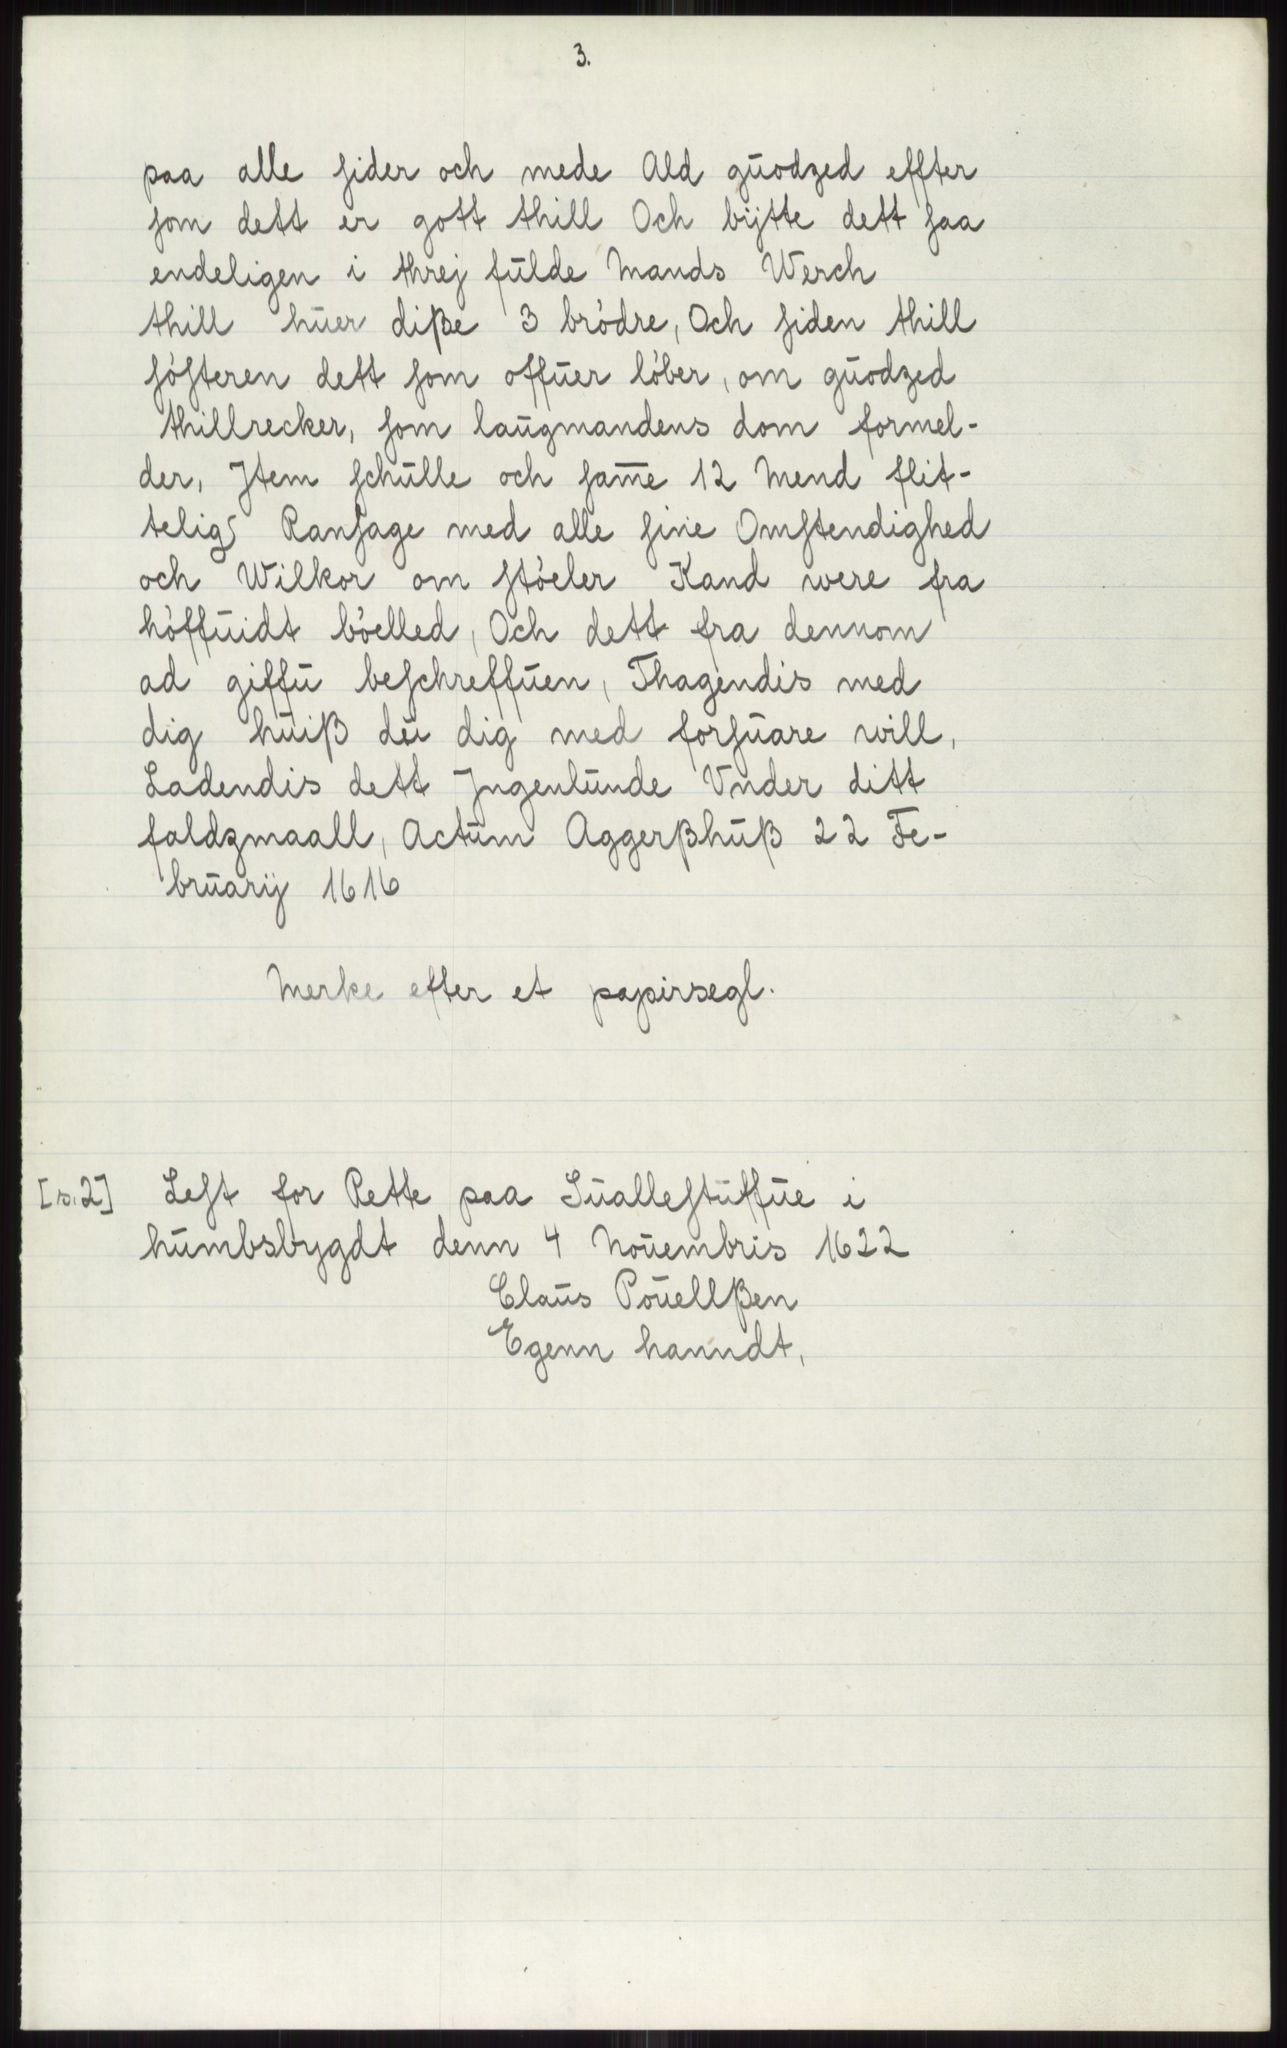 3.
paa alle sider och mede Ald gůodzed effter
som dett er gott thill Och bÿtte dett saa
endeligen i threj fůlde Mands Werch
thill hůer diße 3 brödre, Och siden thill
sösteren dett som offůer löber, om gůodzed
thillrecker, som laůgmandens dom formel-
der, Jtem schůlle och sam̅e 12 Mend flit-
telig Ransage med alle sine Omstendighed
och Wilkor om stöeler Kand were fra
höffůidt böelled, Och dett fra dennom
ad giffů beschreffůen, Thagendis med
dig hůiß dů dig med forsůare will,
Ladendis dett Jngenlůnde Vnder ditt
faldzmaall, Actům Aggerßhůß 22 Fe-
brůarij 1616
Merke efter et papirsegl.
[s.2] Lest for Rette paa Sůallestůffůe i
hůmbsbygdt denn 4 Noůembris 1622
Claůs Poůellßen
Egenn hanndt,